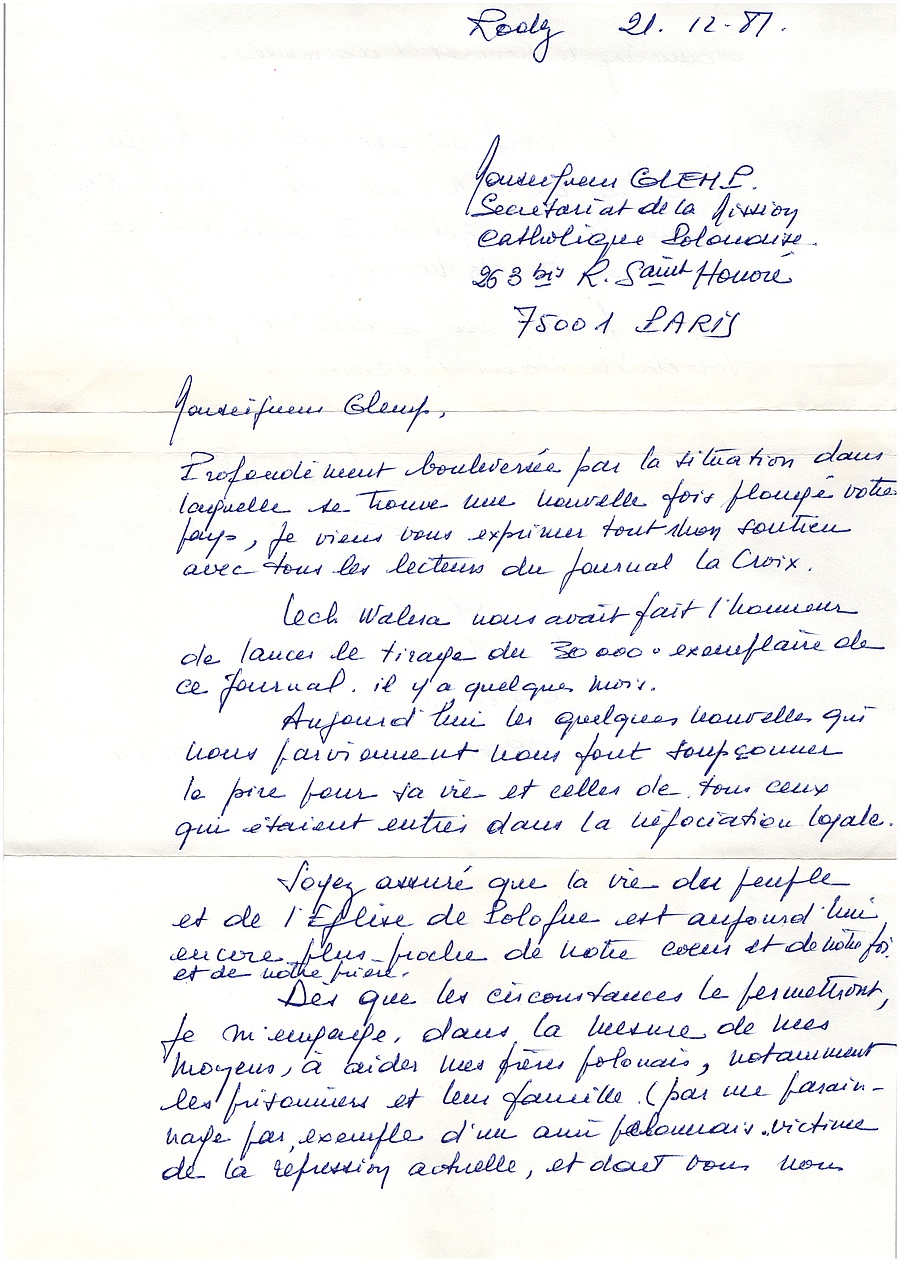 Rodez 21.12-81.
Monseigneur GLEMP.
Secrétariat de la Mission
Catholique Polonaise.
263 bis R. Saint Honoré
75001 PARIS
Monseigneur Glemp,
Profondément bouleversée par la situation dans
laquelle se trouve une nouvelle fois plongé votre
pays, je viens vous exprimer tout mon soutien
avec tous les lecteurs du journal la Croix.
Lech Walesa nous avait fait l'honneur
de lancer le tirage du 30 000° exemplaire de
ce journal. il y a quelques mois.
Aujourd'hui les quelques nouvelles qui
nous parviennent nous font soupçonner
le pire pour sa vie et celles de tous ceux
qui étaient entrés dans la négociation loyale.
Soyez assuré que la vie du peuple
et de l'Eglise de Pologne est aujourd'hui
encore plus proche de notre coeur et de notre foi.
et de notre prière.
Dès que les circonstances le permettront,
je m'engage, dans la mesure de mes
moyens, à aider mes frères polonais, notamment
les prisonniers et leur famille. (par un parain-
nage par exemple d'un ami polonnais victime
de la répression actuelle, et dont vous nous